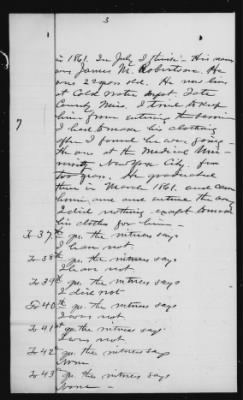 3
in 1861. In July I think - His name
was James M. Robertson. He
was 22 years old. He was living
at Cold Water Depot Tate
County Miss. I tried to keep
him from entering the service
I had to make his clothing
after I found he was going -
He was at the Medical
New York City, for
two years. He graduated
there in March 1861. and came
home and entered the army
I did nothing except to make
his clothes for him -
7
To 37th qu. the witness says
I have not
To 38th qu. the witness says
I have not
To 39th qu. the witness says
I did not
To 40th qu. the witness says
I was not
To 41st qu. the witness says
I was not
To 42 qu. the witness says
None
To 43 qu. the witness says
None -